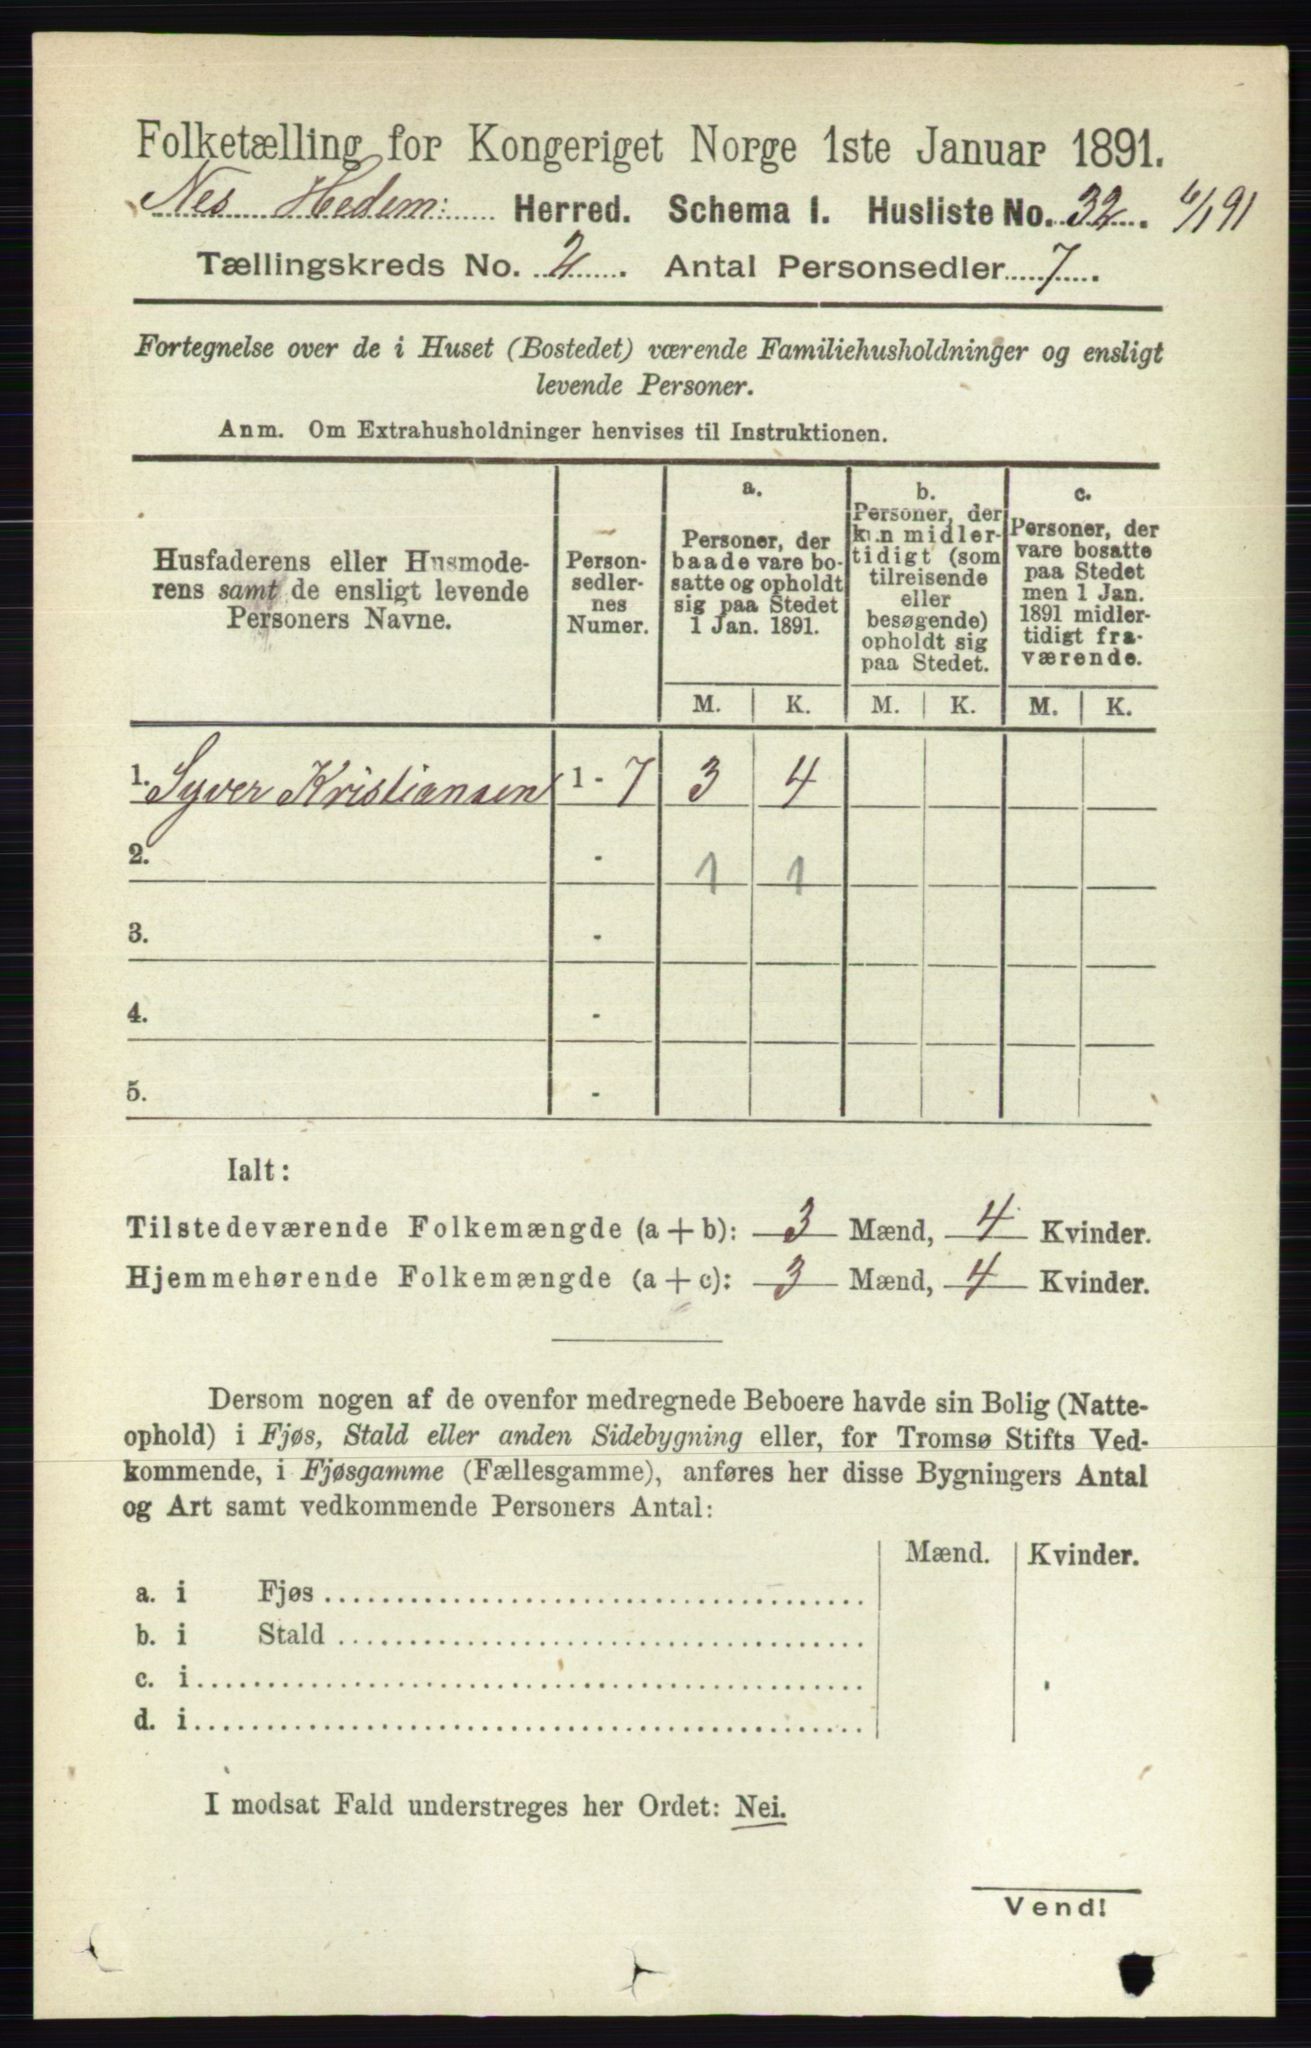 Folketælling for Kongeriget Norge 1ste Januar 1891.
Nes Hedem: Herred. Schema I. Husliste No. 32. 6/1 91
Tællingskreds No. 2. Antal Personsedler 7.
Fortegnelse over de i Huset (Bostedet) værende Familiehusholdninger og ensligt
levende Personer.
Anm. Om Extrahusholdninger henvises til Instruktionen.
Husfaderens eller Husmode-
rens samt de ensligt levende
Personers Navne.
Person-
sedler-
nes
Numer.
a.
Personer, der
baade vare bo-
satte og opholdt
sig paa Stedet
1 Jan. 1891.
b.
Personer, der
kun midler-
tidigt (som
tilreisende
eller
besøgende)
opholdt sig
paa Stedet.
c.
Personer, der
vare bosatte
paa Stedet
men 1 Jan.
1891 midler-
tidigt fra-
værende.
M. K. M. K. M. K.
1. Syver Kristiansen 1 - 7 3 4
2. - 1 1
3. -
4. -
5. -
Ialt:
Tilstedeværende Folkemængde (a + b): 3 Mænd, 4 Kvinder.
Hjemmehørende Folkemængde (a + c): 3 Mænd, 4 Kvinder.
Dersom nogen af de ovenfor medregnede Beboere havde sin Bolig (Natte-
ophold) i Fjøs, Stald eller anden Sidebygning eller, for Tromsø Stifts Ved-
kommende, i Fjøsgamme (Fællesgamme), anføres her disse Bygningers Antal
og Art samt vedkommende Personers Antal:
Mænd. Kvinder.
a. i Fjøs
b. i Stald
c. i
d. i
I modsat Fald understreges her Ordet: Nei.
Vend!